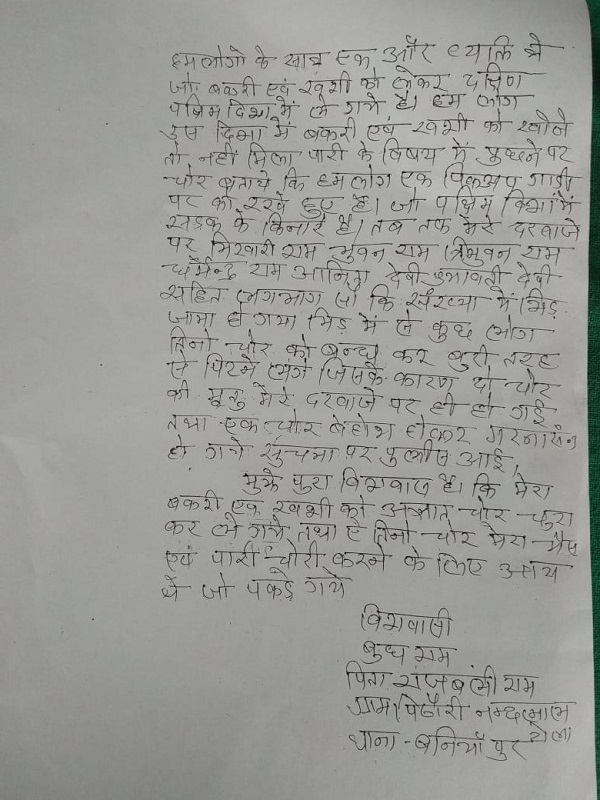 हमलोगो के साथ एक और व्यक्ति थे
जो बकरी एवं खशी को लेकर दक्षिण
पश्चिम दिशा में ले गये है। हम लोग
उस दिशा में बकरी एवं खशी को खोजे
तो नही मिला पारी के विषय में पुछने पर
चोर बताये कि हमलोग एक पिकअप गाड़ी
पर को रखे हुए है। जो पश्चिम दिशा में
सड़क के किनारे है। तब तक मेरे दरवाजे
पर भिखारी राम भुवन राम त्रिभुवन राम
धर्मेन्द्र राम देवी देवी
सहित लगभाग सौ कि संख्या में भिड़
जामा हो गया भिड़ में से कुछ लोग
तिनो चोर को बन्धक कर बुरी तरह
से पिटने लगे जिसके कारण दो चोर
की मृतु मेरे दरवाजे पर ही हो गई
तथा एक चोर बेहोश होकर
हो गये सुचना पर पुलीस आई,
मुझे पुरा विशवास है। कि मेरा
बकरी एवं खशी को अज्ञात चोर चुरा
कर ले गये तथा ऐ तिनो चोर मेरा भैस
एवं पारी चोरी करने के लिए आये
थे जो पकड़े गये
विशवासी
बुध राम
पिता राम
ग्राम पिठौरी नन्दलाल
टोला
थाना - बनियाँपुर